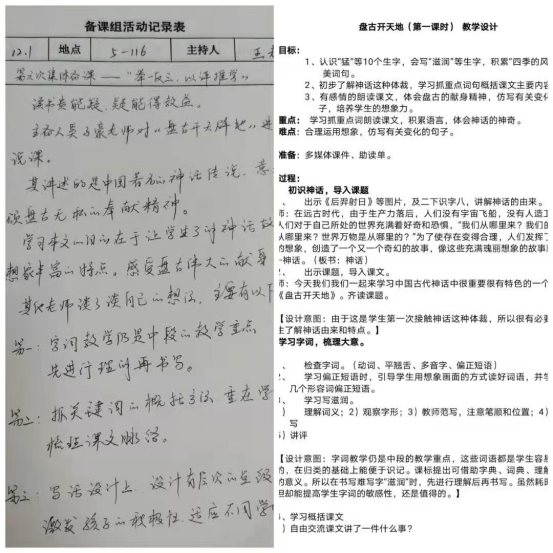 备课组活动记录表
12.1 地点 5-116 主持人 王
第六次集体备课——“举一反三，以评推学”
读书贵能疑，疑能得教益。
主备人吴子豪老师对《盘古开天辟地》进
说课。
其讲述的是中国著名的神话传说，意
颂盘古无私的奉献精神。
学习本文的目的在于让学生了解神话故
想象丰富的特点。感受盘古伟大的献身
其他老师谈了谈自己的想法，主要有以下
第一：字词教学仍是中段的教学重点
先进行理解再书写。
第二：抓关键词的概括方法，重在学
梳理课文脉络。
第三：写话设计上，设计有层次的
激发孩子的积极性，适应不同学
盘古开天地（第一课时） 教学设计
目标：
1、认识“猛”等10个生字，会写“滋润”等生字，积累“四季的风
美词句。
2、初步了解神话这种体裁，学习抓重点词句概括课文主要内容
3、有感情的朗读课文，体会盘古的献身精神，仿写有关变化
子，培养学生的想象力。
重点： 学习抓重点词句朗读课文，积累语言，体会神话的神奇。
难点：合理运用想象，仿写有关变化的句子。
准备：多媒体课件、助读单。
过程：
初识神话，导入课题
、 出示《后羿射日》等图片，及二下识字八，讲解神话的由来。
师：在远古时代，由于生产力落后，人们没有宇宙飞船，没有人造卫
人们对于自己所处的世界充满着好奇和恐惧，“我们从哪里来？我们的
从哪里来？世界万物是从哪里的？”为了使存在变得合理，人们发挥了
的想象，创造了一个又一个奇幻的故事，像这些充满瑰丽想象的故事
-神话。（板书：神话）
、 出示课题，导入课文。
师：今天我们我们一起来学习中国古代神话中很重要很有特色的一个
《盘古开天地》。齐读课题。
【设计意图：由于这是学生第一次接触神话这种体裁，所以很有必
生了解神话由来和特点。】
学习字词，梳理大意。
、 检查字词。（动词、平翘舌、多音字、偏正短语）
、 学习偏正短语时，引导学生用想象画面的方式读好词语，并学
几个形容词偏正短语。
、 学习写滋润。
） 理解词义；2）观察字形；3）教师范写，注意笔顺和位置；4）
写
）讲评
【设计意图：字词教学仍是中段的教学重点，这些词语都是学生容易
的，在归类的基础上能便于识记。课标提出可借助字典、词典、理解
的意义。所以在书写难写字“滋润”时，先进行理解后再书写。虽然耗时
但却能提高学生字词的敏感性，还是值得的。】
、学习概括课文
）自由交流课文讲了一件什么事？